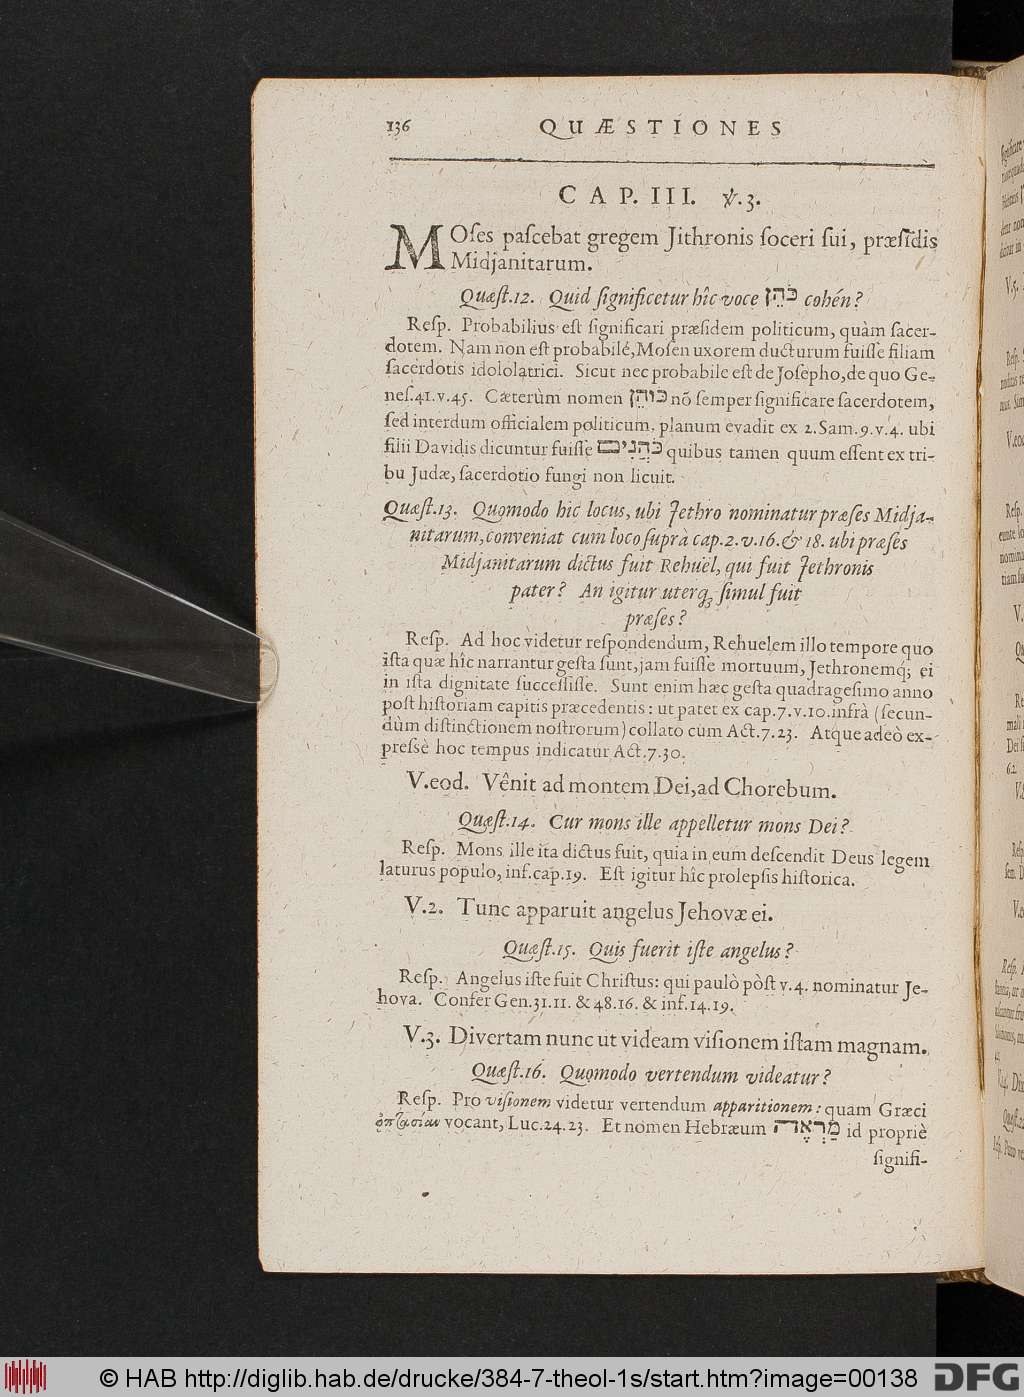 136 QUÆSTIONES
CAP. III. ℣.3.
MOſes paſcebat gregem Jithronis ſoceri ſui, præſidis
Midjanitarum.
Quæſt.12. Quid ſignificetur hîc voce כֹּהֵן cohén?
Reſp. Probabilius eſt ſignificari præſidem politicum, quàm ſacer-
dotem. Nam non eſt probabilé, Moſen uxorem ducturum fuiſſe filiam
ſacerdotis idololatrici. Sicut nec probabile eſt de Joſepho, de quo Ge-
neſ.41.v.45. Cæterùm nomen כּוֹהֵן nõ ſemper ſignificare ſacerdotem,
ſed interdum officialem politicum, planum evadit ex 2.Sam.9.v.4. ubi
filii Davidis dicuntur fuiſſe כֹּהֲנִים quibus tamen quum eſſent ex tri-
bu Judæ, ſacerdotio fungi non licuit.
Quæſt.13. Quomodo hic locus, ubi Jethro nominatur præſes Midja-
nitarum, conveniat cum loco ſuprà cap.2.v.16.& 18. ubi præſes
Midjanitarum dictus fuit Rehuël, qui fuit Jethronis
pater? An igitur uterq; ſimul fuit
præſes?
Reſp. Ad hoc videtur reſpondendum, Rehuelem illo tempore quo
iſta quæ hîc narrantur geſta ſunt, jam fuiſſe mortuum, Jethronemq́; ei
in iſta dignitate ſucceſſiſſe. Sunt enim hæc geſta quadrageſimo anno
poſt hiſtoriam capitis præcedentis: ut patet ex cap.7.v.10.infrà (ſecun-
dùm diſtinctionem noſtrorum) collato cum Act.7.23. Atque adeò ex-
preſsè hoc tempus indicatur Act.7.30.
V.eod. Vênit ad montem Dei, ad Chorebum.
Quæſt.14. Cur mons ille appelletur mons Dei?
Reſp. Mons ille ita dictus fuit, quia in eum deſcendit Deus legem
laturus populo, inf.cap.19. Eſt igitur hîc prolepſis hiſtorica.
V.2. Tunc apparuit angelus Jehovæ ei.
Quæſt.15. Quis fuerit iſte angelus?
Reſp. Angelus iſte fuit Chriſtus: qui paulò pòſt v.4. nominatur Je-
hova. Confer Gen.31.11. & 48.16. & inf.14.19.
V.3. Divertam nunc ut videam viſionem iſtam magnam.
Quæſt.16. Quomodo vertendum videatur?
Reſp. Pro viſionem videtur vertendum apparitionem: quam Græci
ὀπτασίαν vocant, Luc.24.23. Et nomen Hebræum מַרְאֶה id propriè
ſignifi-
© HAB http://diglib.hab.de/drucke/384-7-theol-1s/start.htm?image=00138 DFG